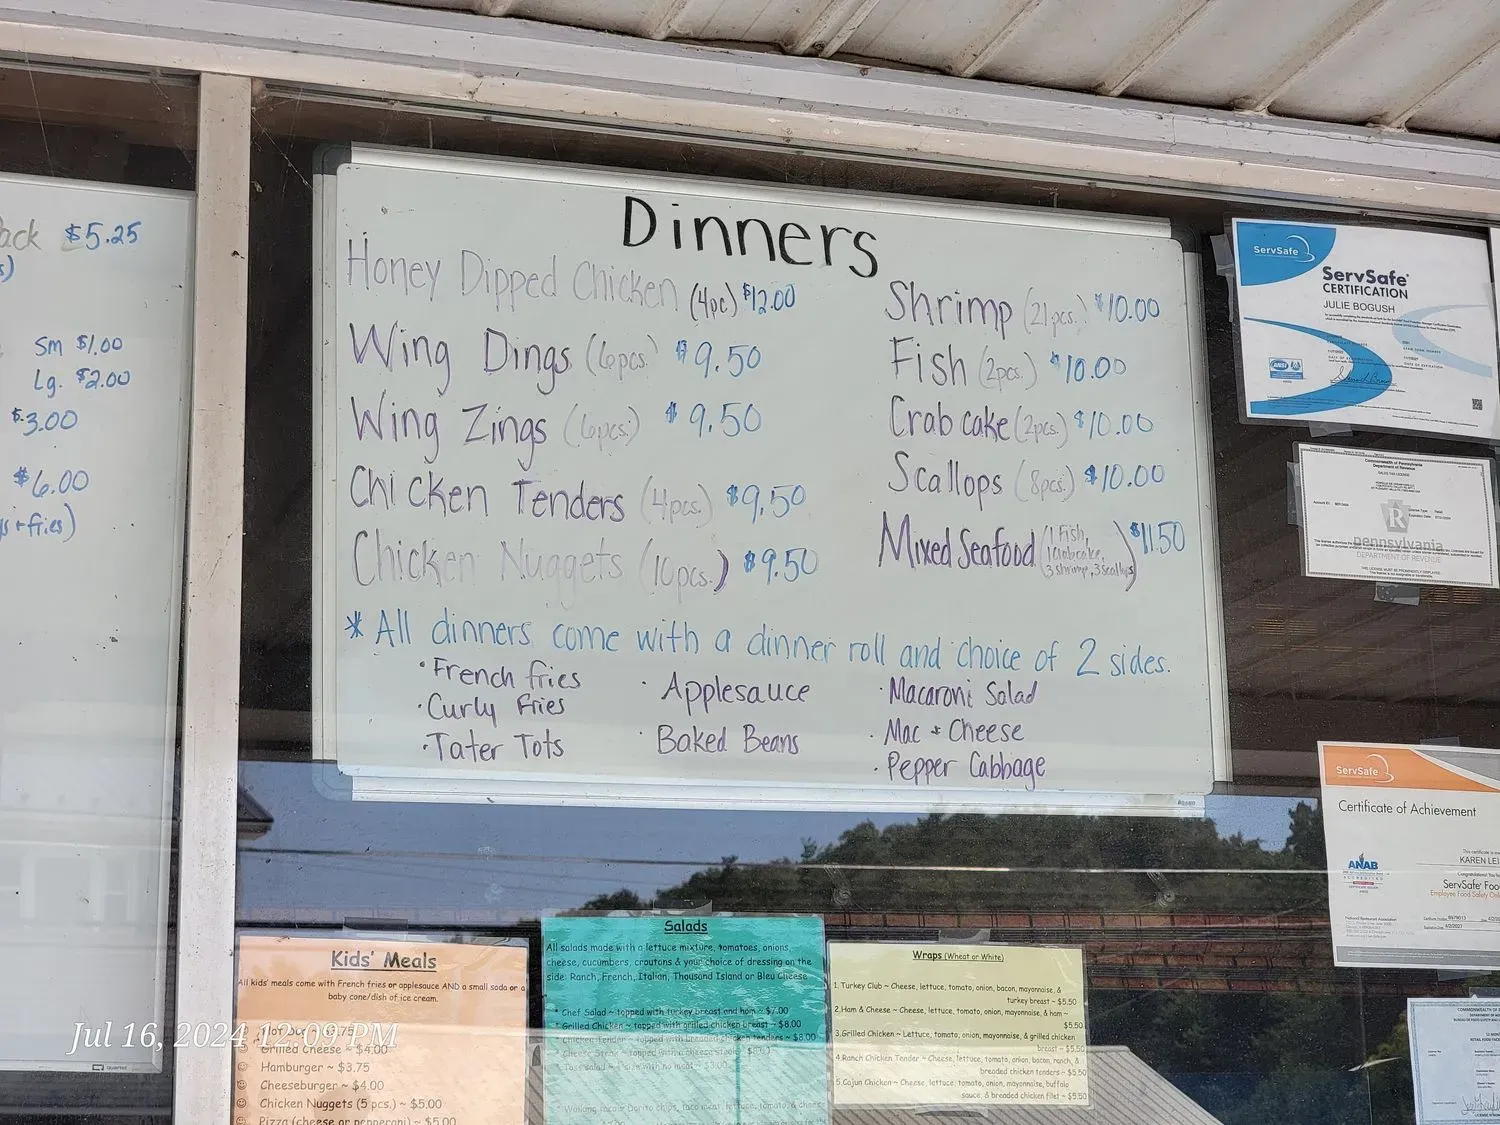 ack $5.25
s)
Sm $1.00
Lg. $2.00
$3.00
$6.00
s + fries)
Dinners
Honey Dipped Chicken (4pc) $12.00
Wing Dings (6pcs.) $9.50
Wing Zings (6pcs.) $9.50
Chicken Tenders (4pcs.) $9.50
Chicken Nuggets (10pcs.) $9.50
Shrimp (21pcs.) $10.00
Fish (2pcs.) $10.00
Crab cake (2pcs.) $10.00
Scallops (8pcs.) $10.00
Mixed Seafood (1 Fish, $11.50
1 Crabcake,
3 shrimp, 3 scallops)
* All dinners come with a dinner roll and choice of 2 sides.
· French fries
· Curly Fries
· Tater Tots
· Applesauce
· Baked Beans
· Macaroni Salad
· Mac + Cheese
· Pepper Cabbage
ServSafe
ServSafe®
CERTIFICATION
JULIE BOGUSH
Commonwealth of Pennsylvania
Department of Revenue
SALES TAX LICENSE
R
pennsylvania
DEPARTMENT OF REVENUE
ServSafe
Certificate of Achievement
KAREN LEI
ANAB
ServSafe Foo
Kids' Meals
All kids' meals come with French fries or applesauce AND a small soda or a
baby cone/dish of ice cream.
Grilled Cheese ~ $4.00
Hamburger ~ $3.75
Cheeseburger ~ $4.00
Chicken Nuggets (5 pcs.) ~ $5.00
Pizza (cheese or pepperoni) ~ $5.00
Salads
All salads made with a lettuce mixture, tomatoes, onions,
cheese, cucumbers, croutons & your choice of dressing on the
side: Ranch, French, Italian, Thousand Island or Bleu Cheese
* Chef Salad ~ topped with turkey breast and ham ~ $7.00
* Grilled Chicken ~ topped with grilled chicken breast ~ $8.00
* Chicken Tender ~ topped with breaded chicken tenders ~ $8.00
* Cheese Steak ~ topped with a cheese steak
Wraps (Wheat or White)
1. Turkey Club ~ Cheese, lettuce, tomato, onion, bacon, mayonnaise, &
turkey breast ~ $5.50
2. Ham & Cheese ~ Cheese, lettuce, tomato, onion, mayonnaise, & ham ~
$5.50
3. Grilled Chicken ~ Lettuce, tomato, onion, mayonnaise, & grilled chicken
breast ~ $5.50
4. Ranch Chicken Tender ~ Cheese, lettuce, tomato, onion, bacon, ranch, &
breaded chicken tenders ~ $5.50
5. Cajun Chicken ~ Cheese, lettuce, tomato, onion, mayonnaise, buffalo
sauce, & breaded chicken filet ~ $5.50
Jul 16, 2024 12:09 PM